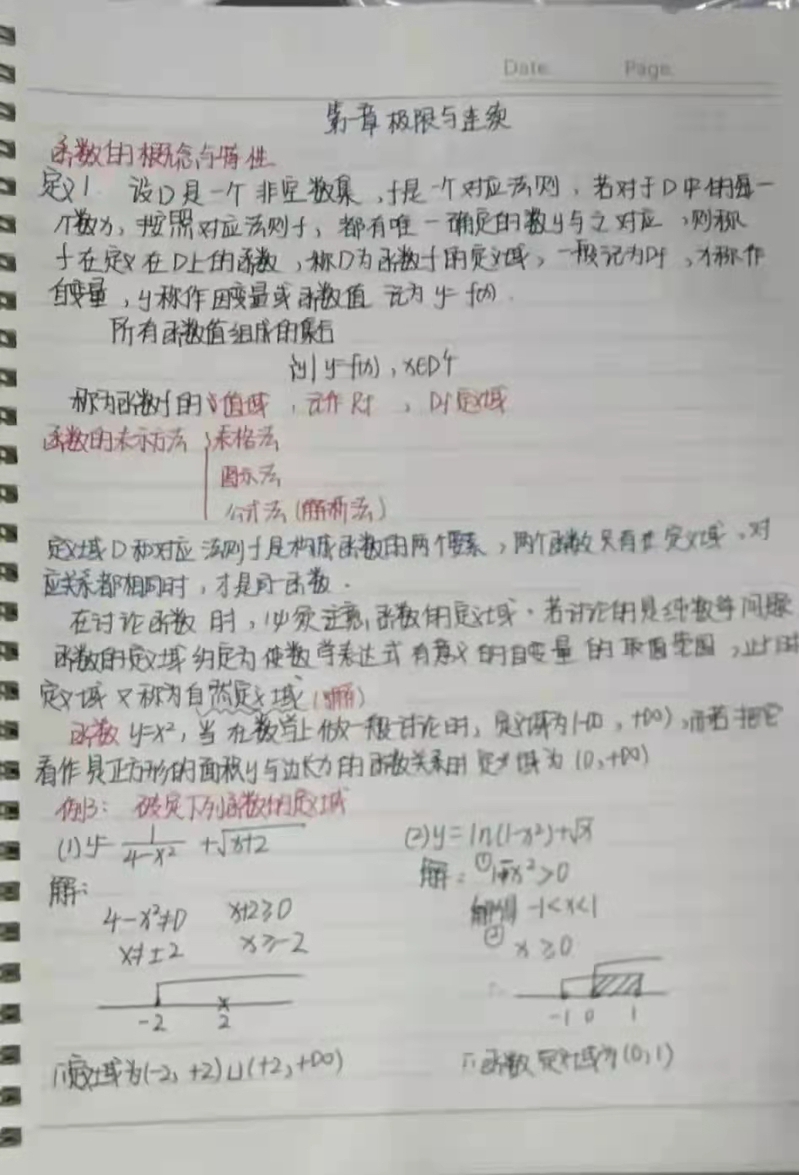 Date Page
第一章极限与连续
函数的概念与特性
定义1. 设D是一个非空数集,f是一个对应法则,若对于D中的每一
个数x,按照对应法则f,都有唯一确定的数y与之对应,则称
f在定义在D上的函数,称D为函数f的定义域,一般记为Df,x称作
自变量,y称作因变量或函数值 记为 y=f(x).
所有函数值组成的集合
{y|y=f(x),x∈D}
称为函数f的值域,记作Rf,Df定义域
函数的表示方法 表格法
图示法
公式法(解析法)
定义域D和对应法则f是构成函数的两个要素,两个函数只有在定义域、对
应关系都相同时,才是同一函数.
在讨论函数时,必须注意函数的定义域.若讨论的是纯数学问题
函数的定义域约定为使数学表达式有意义的自变量的取值范围,此时
定义域又称为自然定义域
函数y=x²,当在数学上做一般讨论时,定义域为(-∞,+∞),而若把它
看作是正方形的面积y与边长x的函数关系时定义域为(0,+∞)
例3:确定下列函数的定义域
(1)y=1/(4-x²)+√(x+2) (2)y=ln(1-x²)+√x
解: 解:①1-x²>0
4-x²≠0 x+2≥0 解得 -1<x<1
x≠±2 x≥-2 ② x≥0
-2 2 ∴ -1 0 1
∴定义域为(-2,+2)∪(+2,+∞) ∴函数定义域为(0,1)